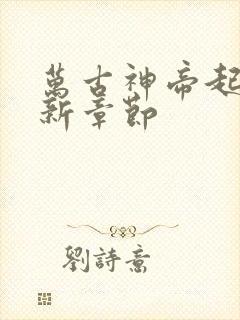 萬古神帝起
新章節
劉詩意